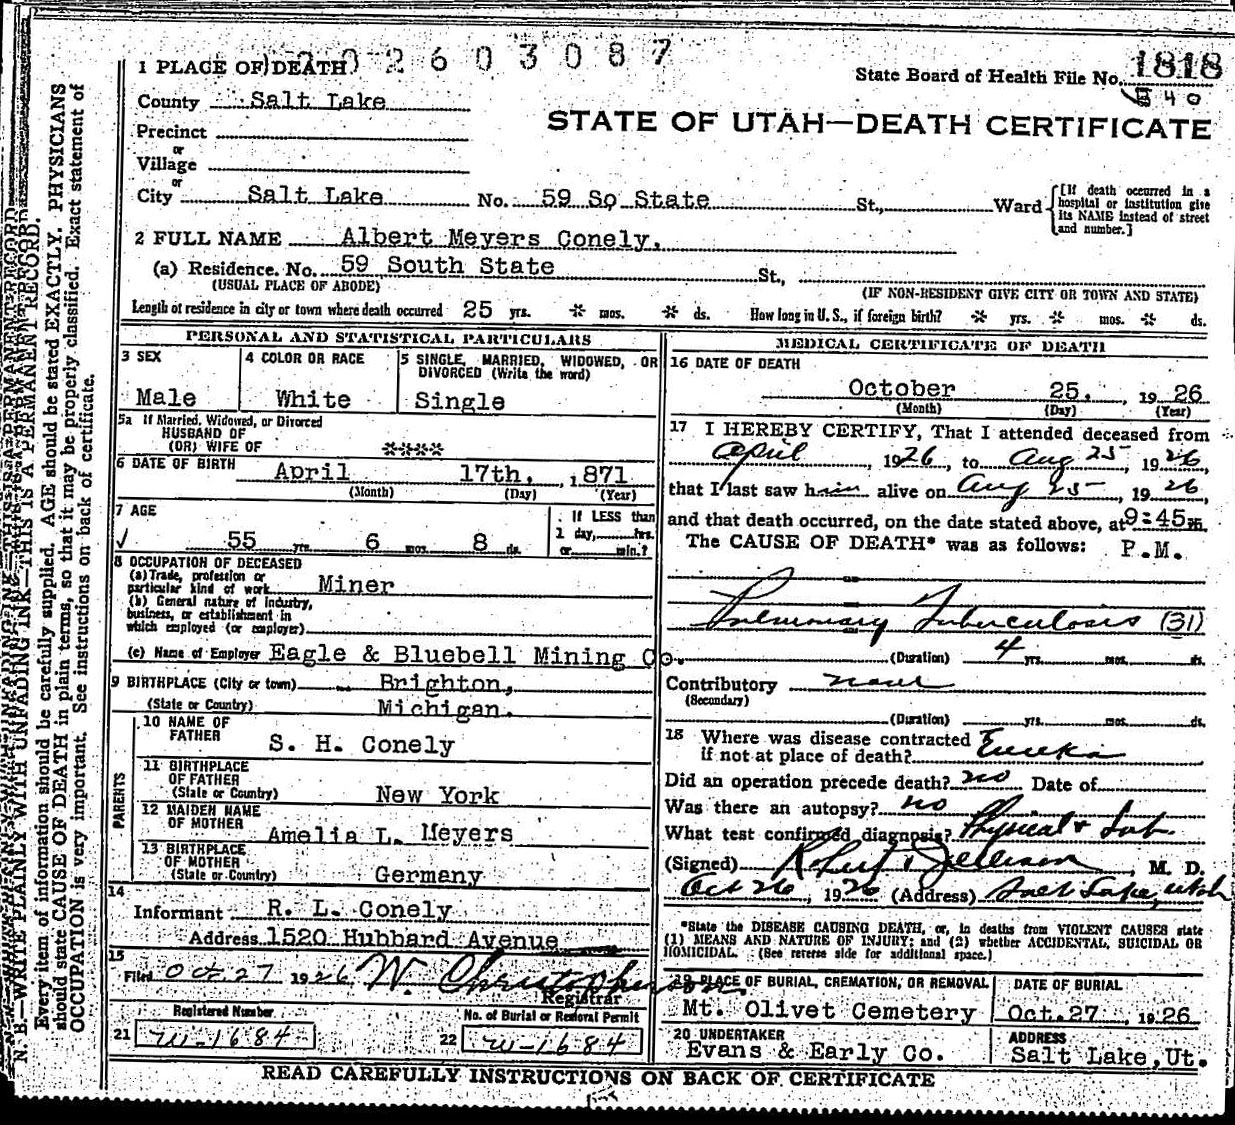 2 0 2 6 0 3 0 8 7
1 PLACE OF DEATH
State Board of Health File No. 1818
County Salt Lake
840
STATE OF UTAH—DEATH CERTIFICATE
Precinct
or
Village
or
City Salt Lake No. 59 So State St., Ward
[If death occurred in a hospital or institution give its NAME instead of street and number.]
2 FULL NAME Albert Meyers Conely.
(a) Residence. No. 59 South State St.,
(USUAL PLACE OF ABODE) (IF NON-RESIDENT GIVE CITY OR TOWN AND STATE)
Length of residence in city or town where death occurred 25 yrs. * mos. * ds. How long in U. S., if foreign birth? * yrs. * mos. * ds.
PERSONAL AND STATISTICAL PARTICULARS
3 SEX
Male
4 COLOR OR RACE
White
5 SINGLE, MARRIED, WIDOWED, OR
DIVORCED (Write the word)
Single
5a If Married, Widowed, or Divorced
HUSBAND OF
(OR) WIFE OF ****
6 DATE OF BIRTH April 17th, 1871
(Month) (Day) (Year)
7 AGE
55 yrs. 6 mos. 8 ds.
If LESS than
1 day, hrs.
or min.?
8 OCCUPATION OF DECEASED
(a) Trade, profession or
particular kind of work Miner
(b) General nature of industry,
business, or establishment in
which employed (or employer)
(c) Name of Employer Eagle & Bluebell Mining Co.
9 BIRTHPLACE (City or town) Brighton,
(State or Country) Michigan.
PARENTS
10 NAME OF
FATHER S. H. Conely
11 BIRTHPLACE
OF FATHER
(State or Country) New York
12 MAIDEN NAME
OF MOTHER Amelia L. Meyers
13 BIRTHPLACE
OF MOTHER
(State or Country) Germany
14
Informant R. L. Conely
Address 1520 Hubbard Avenue
15
Filed Oct 27 1926 W. Christopherson
Registrar
Registered Number No. of Burial or Removal Permit
21 W-1684 22 W-1684
MEDICAL CERTIFICATE OF DEATH
16 DATE OF DEATH
October 25, 1926
(Month) (Day) (Year)
17 I HEREBY CERTIFY, That I attended deceased from
April, 1926, to Aug 25, 1926,
that I last saw him alive on Aug 25, 1926,
and that death occurred, on the date stated above, at 9:45 m.
The CAUSE OF DEATH* was as follows: P.M.
Pulmonary Tuberculosis (31)
(Duration) 4 yrs. mos. ds.
Contributory none
(Secondary)
(Duration) yrs. mos. ds.
18 Where was disease contracted
if not at place of death? Eureka
Did an operation precede death? no Date of
Was there an autopsy? no
What test confirmed diagnosis? Physical & Lab.
(Signed) Robert Jellison, M. D.
Oct 26, 1926 (Address) Salt Lake, Utah
*State the DISEASE CAUSING DEATH, or, in deaths from VIOLENT CAUSES state
(1) MEANS AND NATURE OF INJURY; and (2) whether ACCIDENTAL, SUICIDAL OR
HOMICIDAL. (See reverse side for additional space.)
19 PLACE OF BURIAL, CREMATION, OR REMOVAL
Mt. Olivet Cemetery
DATE OF BURIAL
Oct. 27, 1926
20 UNDERTAKER
Evans & Early Co.
ADDRESS
Salt Lake, Ut.
READ CAREFULLY INSTRUCTIONS ON BACK OF CERTIFICATE
N. B.—WRITE PLAINLY WITH UNFADING INK—THIS IS A PERMANENT RECORD.
Every item of information should be carefully supplied. AGE should be stated EXACTLY. PHYSICIANS
should state CAUSE OF DEATH in plain terms, so that it may be properly classified. Exact statement of
OCCUPATION is very important. See instructions on back of certificate.